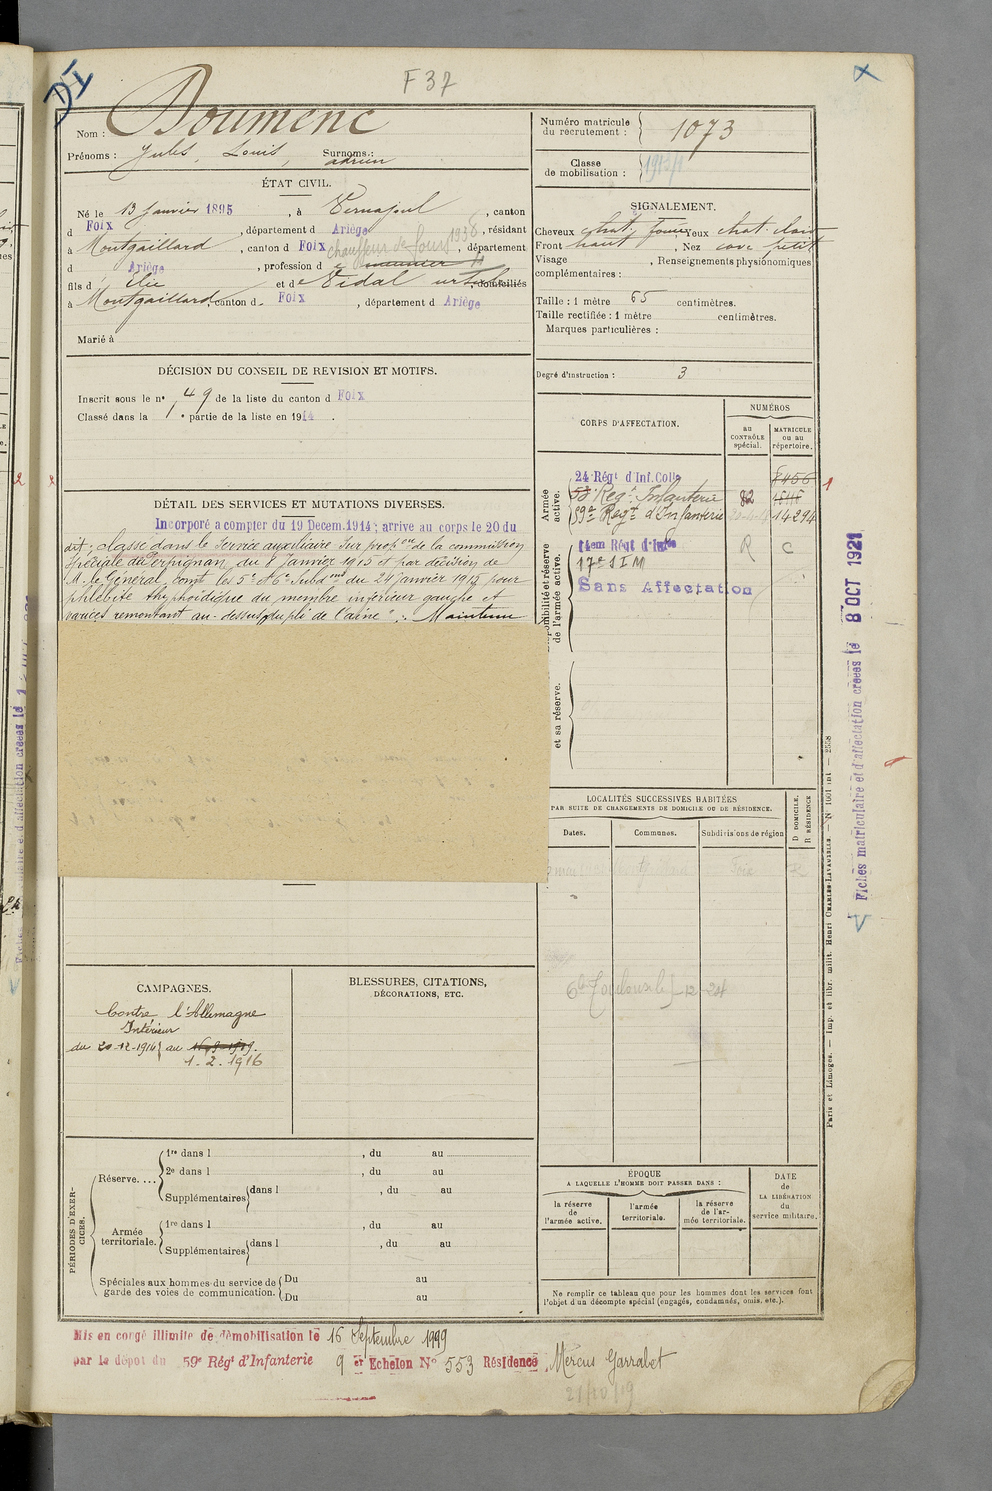 F 37
Nom : Doumenc
Prénoms : Jules, Louis, Surnoms : adrien
Numéro matricule du recrutement : 1073
Classe de mobilisation :
ÉTAT CIVIL.
Né le 13 Janvier 1895, à Vernajoul, canton
d Foix, département d Ariège, résidant
à Montgaillard, canton d Foix, département
d Ariège, profession d meunier
chauffeur de four 1936
fils d Elie et de Vidal domiciliés
à Montgaillard canton d Foix, département d Ariège
Marié à
SIGNALEMENT.
Cheveux chat, Yeux chat. clair
Front haut, Nez cave petit
Visage , Renseignements physionomiques
complémentaires :
Taille : 1 mètre 65 centimètres.
Taille rectifiée : 1 mètre centimètres.
Marques particulières :
Degré d'instruction : 3
DÉCISION DU CONSEIL DE REVISION ET MOTIFS.
Inscrit sous le n° 49 de la liste du canton d Foix
Classé dans la 1e partie de la liste en 1914.
DÉTAIL DES SERVICES ET MUTATIONS DIVERSES.
Incorporé a compter du 19 Decem. 1914; arrive au corps le 20 du
dit; classé dans le service auxiliaire sur propon de la commission
Spéciale de Perpignan, du 8 Janvier 1915 et par décision de
M. le Général, comt les 5e et 6e Subdons du 24 janvier 1915 pour
phlébite thyphoïdique du membre inférieur gauche et
varices remontant au-dessus du pli de l'aine". Maintenu
CORPS D'AFFECTATION.
NUMÉROS
au CONTRÔLE spécial.
MATRICULE ou au répertoire.
Armée active.
24 Régt d'Inf. Colle 8456
53e Regt Infanterie 82 15115
59e Regt d'Infanterie 14294
Disponibilité et réserve de l'armée active.
14em Régt d'Infie R C
17e S I M
Sans Affectation
et sa réserve.
LOCALITÉS SUCCESSIVES HABITÉES
PAR SUITE DE CHANGEMENTS DE DOMICILE OU DE RÉSIDENCE.
Dates. Communes. Subdivisions de région
D DOMICILE.
R RÉSIDENCE
Montgaillard Foix R
CAMPAGNES.
Contre l'Allemagne
Intérieur
du 20-12-1914 au 16-9-1919.
1. 2. 1916
BLESSURES, CITATIONS,
DÉCORATIONS, ETC.
PÉRIODES D'EXERCICES.
Réserve....
1re dans l , du au
2e dans l , du au
Supplémentaires dans l , du au
Armée territoriale.
1re dans l , du au
Supplémentaires dans l , du au
Spéciales aux hommes du service de garde des voies de communication.
Du au
Du au
ÉPOQUE
A LAQUELLE L'HOMME DOIT PASSER DANS :
la réserve de l'armée active.
l'armée territoriale.
la réserve de l'armée territoriale.
DATE de LA LIBÉRATION du service militaire.
Ne remplir ce tableau que pour les hommes dont les services font
l'objet d'un décompte spécial (engagés, condamnés, omis, etc.).
Mis en congé illimité de démobilisation le 16 Septembre 1919
par le dépôt du 59e Régt d'Infanterie 9 er Echelon N° 553 Résidence Mercus Garrabet
21/10/19
Fiches matriculaire et d'affectation créées le 8 OCT 1921
Paris et Limoges. — Imp. et libr. milit. Henri CHARLES-LAVAUZELLE. —